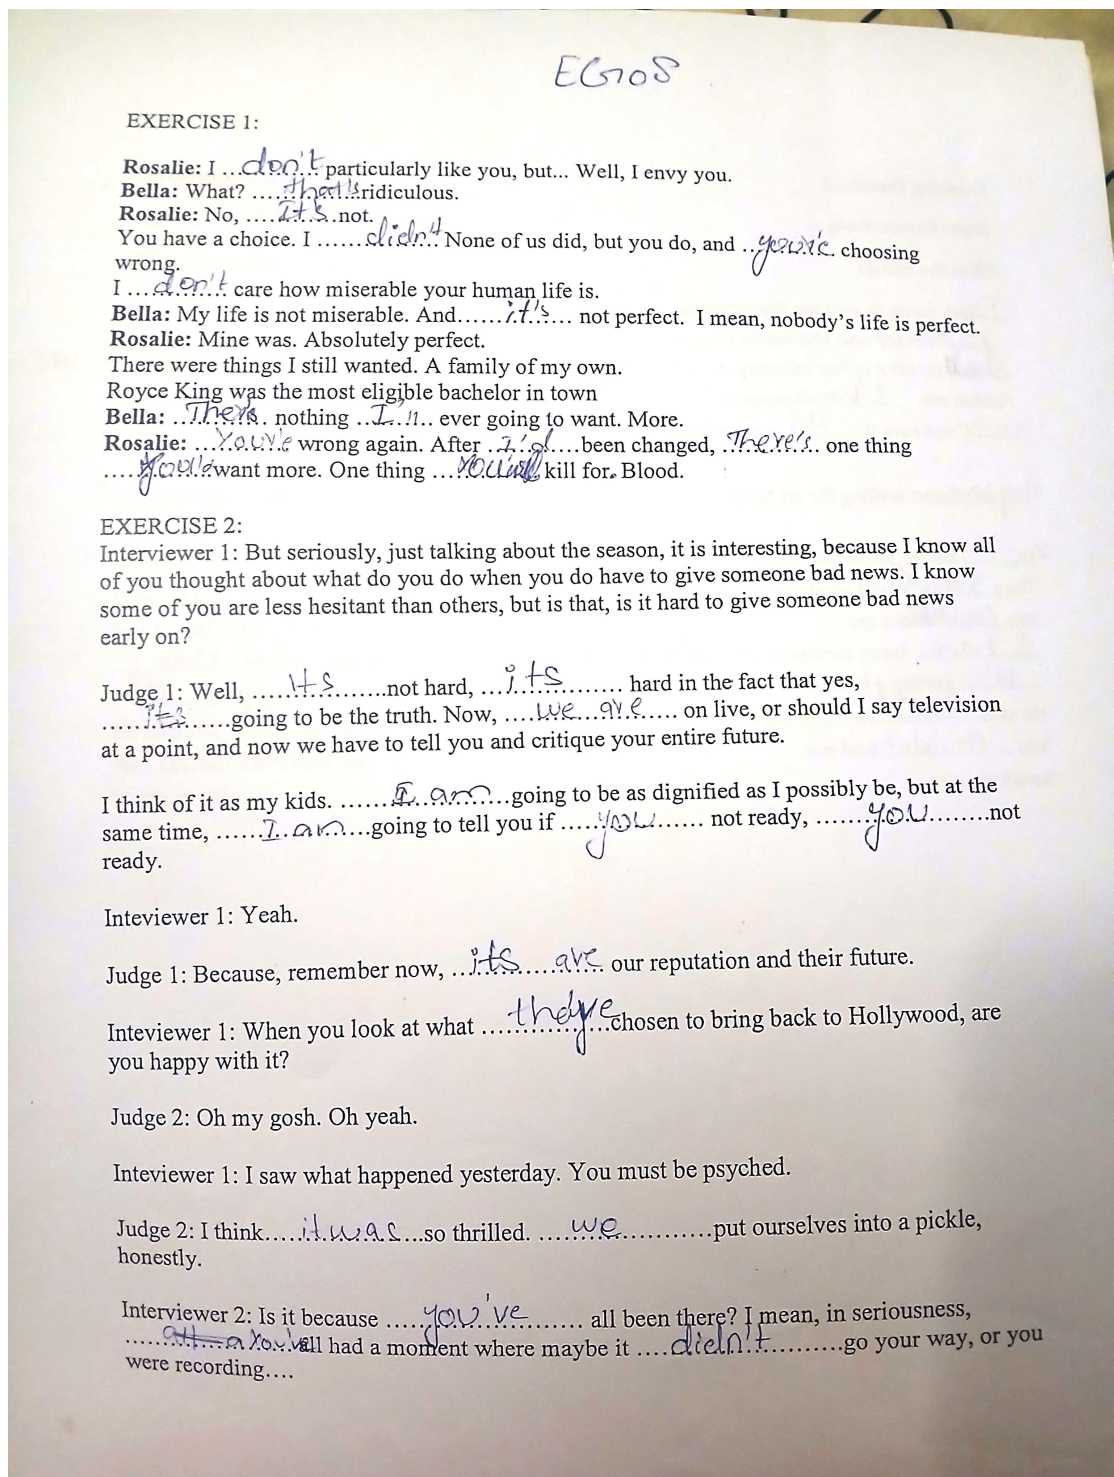 EG108
EXERCISE 1:
Rosalie: I ...don't particularly like you, but... Well, I envy you.
Bella: What? ....that's ridiculous.
Rosalie: No, ....It's..not.
You have a choice. I ......didn't None of us did, but you do, and ..you're choosing
wrong.
I ...don't care how miserable your human life is.
Bella: My life is not miserable. And......it's... not perfect. I mean, nobody's life is perfect.
Rosalie: Mine was. Absolutely perfect.
There were things I still wanted. A family of my own.
Royce King was the most eligible bachelor in town
Bella: ..There's. nothing ..I'll.. ever going to want. More.
Rosalie: ...You're wrong again. After ..I'd....been changed, ..There's.. one thing
....you'd want more. One thing .... kill for. Blood.
EXERCISE 2:
Interviewer 1: But seriously, just talking about the season, it is interesting, because I know all
of you thought about what do you do when you do have to give someone bad news. I know
some of you are less hesitant than others, but is that, is it hard to give someone bad news
early on?
Judge 1: Well, .....Its.......not hard, ...its........ hard in the fact that yes,
......its......going to be the truth. Now, ....we are..... on live, or should I say television
at a point, and now we have to tell you and critique your entire future.
I think of it as my kids. ......I am...going to be as dignified as I possibly be, but at the
same time, ......I am....going to tell you if .....you...... not ready, .......you........not
ready.
Inteviewer 1: Yeah.
Judge 1: Because, remember now, ..its....are. our reputation and their future.
Inteviewer 1: When you look at what .....they're...chosen to bring back to Hollywood, are
you happy with it?
Judge 2: Oh my gosh. Oh yeah.
Inteviewer 1: I saw what happened yesterday. You must be psyched.
Judge 2: I think.....it was...so thrilled. ....we...........put ourselves into a pickle,
honestly.
Interviewer 2: Is it because .....you've........ all been there? I mean, in seriousness,
......You've all had a moment where maybe it ....didn't..........go your way, or you
were recording....